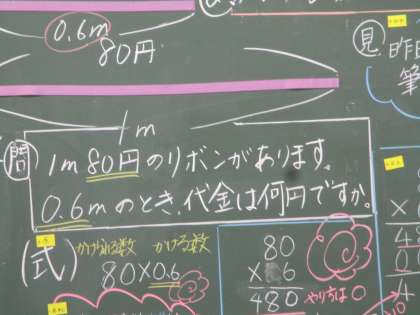 0.6m
80円
1m
問 1m 80円のリボンがあります。
0.6mのとき、代金は何円ですか。
(式) かけられる数 かける数
80×0.6
80
480
やり方は〇
見
昨日
筆